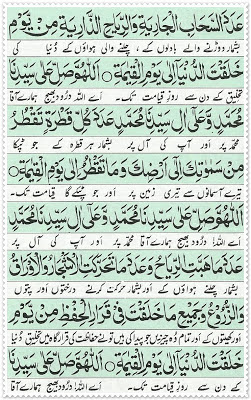 عَدَدَ السَّحَابِ الْجَارِيَةِ وَالرِّيَاحِ الذَّارِيَةِ مِنْ يَّوْمِ
بشمار دوڑنے والے بادلوں کے، چلنے والی ہواؤں کے دنیا کی
خَلَقْتَ الدُّنْيَا اِلٰى يَوْمِ الْقِيٰمَةِ ○ اَللّٰهُمَّ صَلِّ عَلٰى سَيِّدِنَا
تخلیق کے دن سے روزِ قیامت تک۔ اے اللہ! درود بھیج ہمارے آقا
مُحَمَّدٍ وَّعَلٰى اٰلِ سَيِّدِنَا مُحَمَّدٍ عَدَدَ كُلِّ قَطْرَةٍ تَقْطُرُ
محمد پر اور آپ کی آل پر بشمار ہر قطرہ کے جو ٹپکا
مِنْ سَمٰوٰتِكَ اِلٰى اَرْضِكَ وَمَا تَقْطُرُ اِلٰى يَوْمِ الْقِيٰمَةِ ○
تیرے آسمانوں سے تیری زمین پر اور جو ٹپکے گا قیامت تک۔
اَللّٰهُمَّ صَلِّ عَلٰى سَيِّدِنَا مُحَمَّدٍ وَّعَلٰى اٰلِ سَيِّدِنَا مُحَمَّدٍ
اے اللہ! درود بھیج ہمارے آقا محمد پر اور آپ کی آل پر
عَدَدَ مَا هَبَّتِ الرِّيَاحُ وَعَدَدَ مَا تَحَرَّكَتِ الْاَشْجَارُ وَالْاَوْرَاقُ
بشمار چلنے والی ہواؤں کے اور بشمار حرکت کرنے درختوں اور پتوں
وَالزُّرُوْعُ وَجَمِيْعِ مَا خَلَقْتَ فِيْ قَرَارِ الْحِفْظِ مِنْ يَّوْمِ
اور کھیتوں کے اور تمام وہ چیزیں جو پیدا کی ہیں تو نے حفاظت کی قرارگاہ میں تخلیق دنیا
خَلَقْتَ الدُّنْيَا اِلٰى يَوْمِ الْقِيٰمَةِ ○ اَللّٰهُمَّ صَلِّ عَلٰى سَيِّدِنَا
کے دن سے روزِ قیامت تک۔ اے اللہ! درود بھیج ہمارے آقا